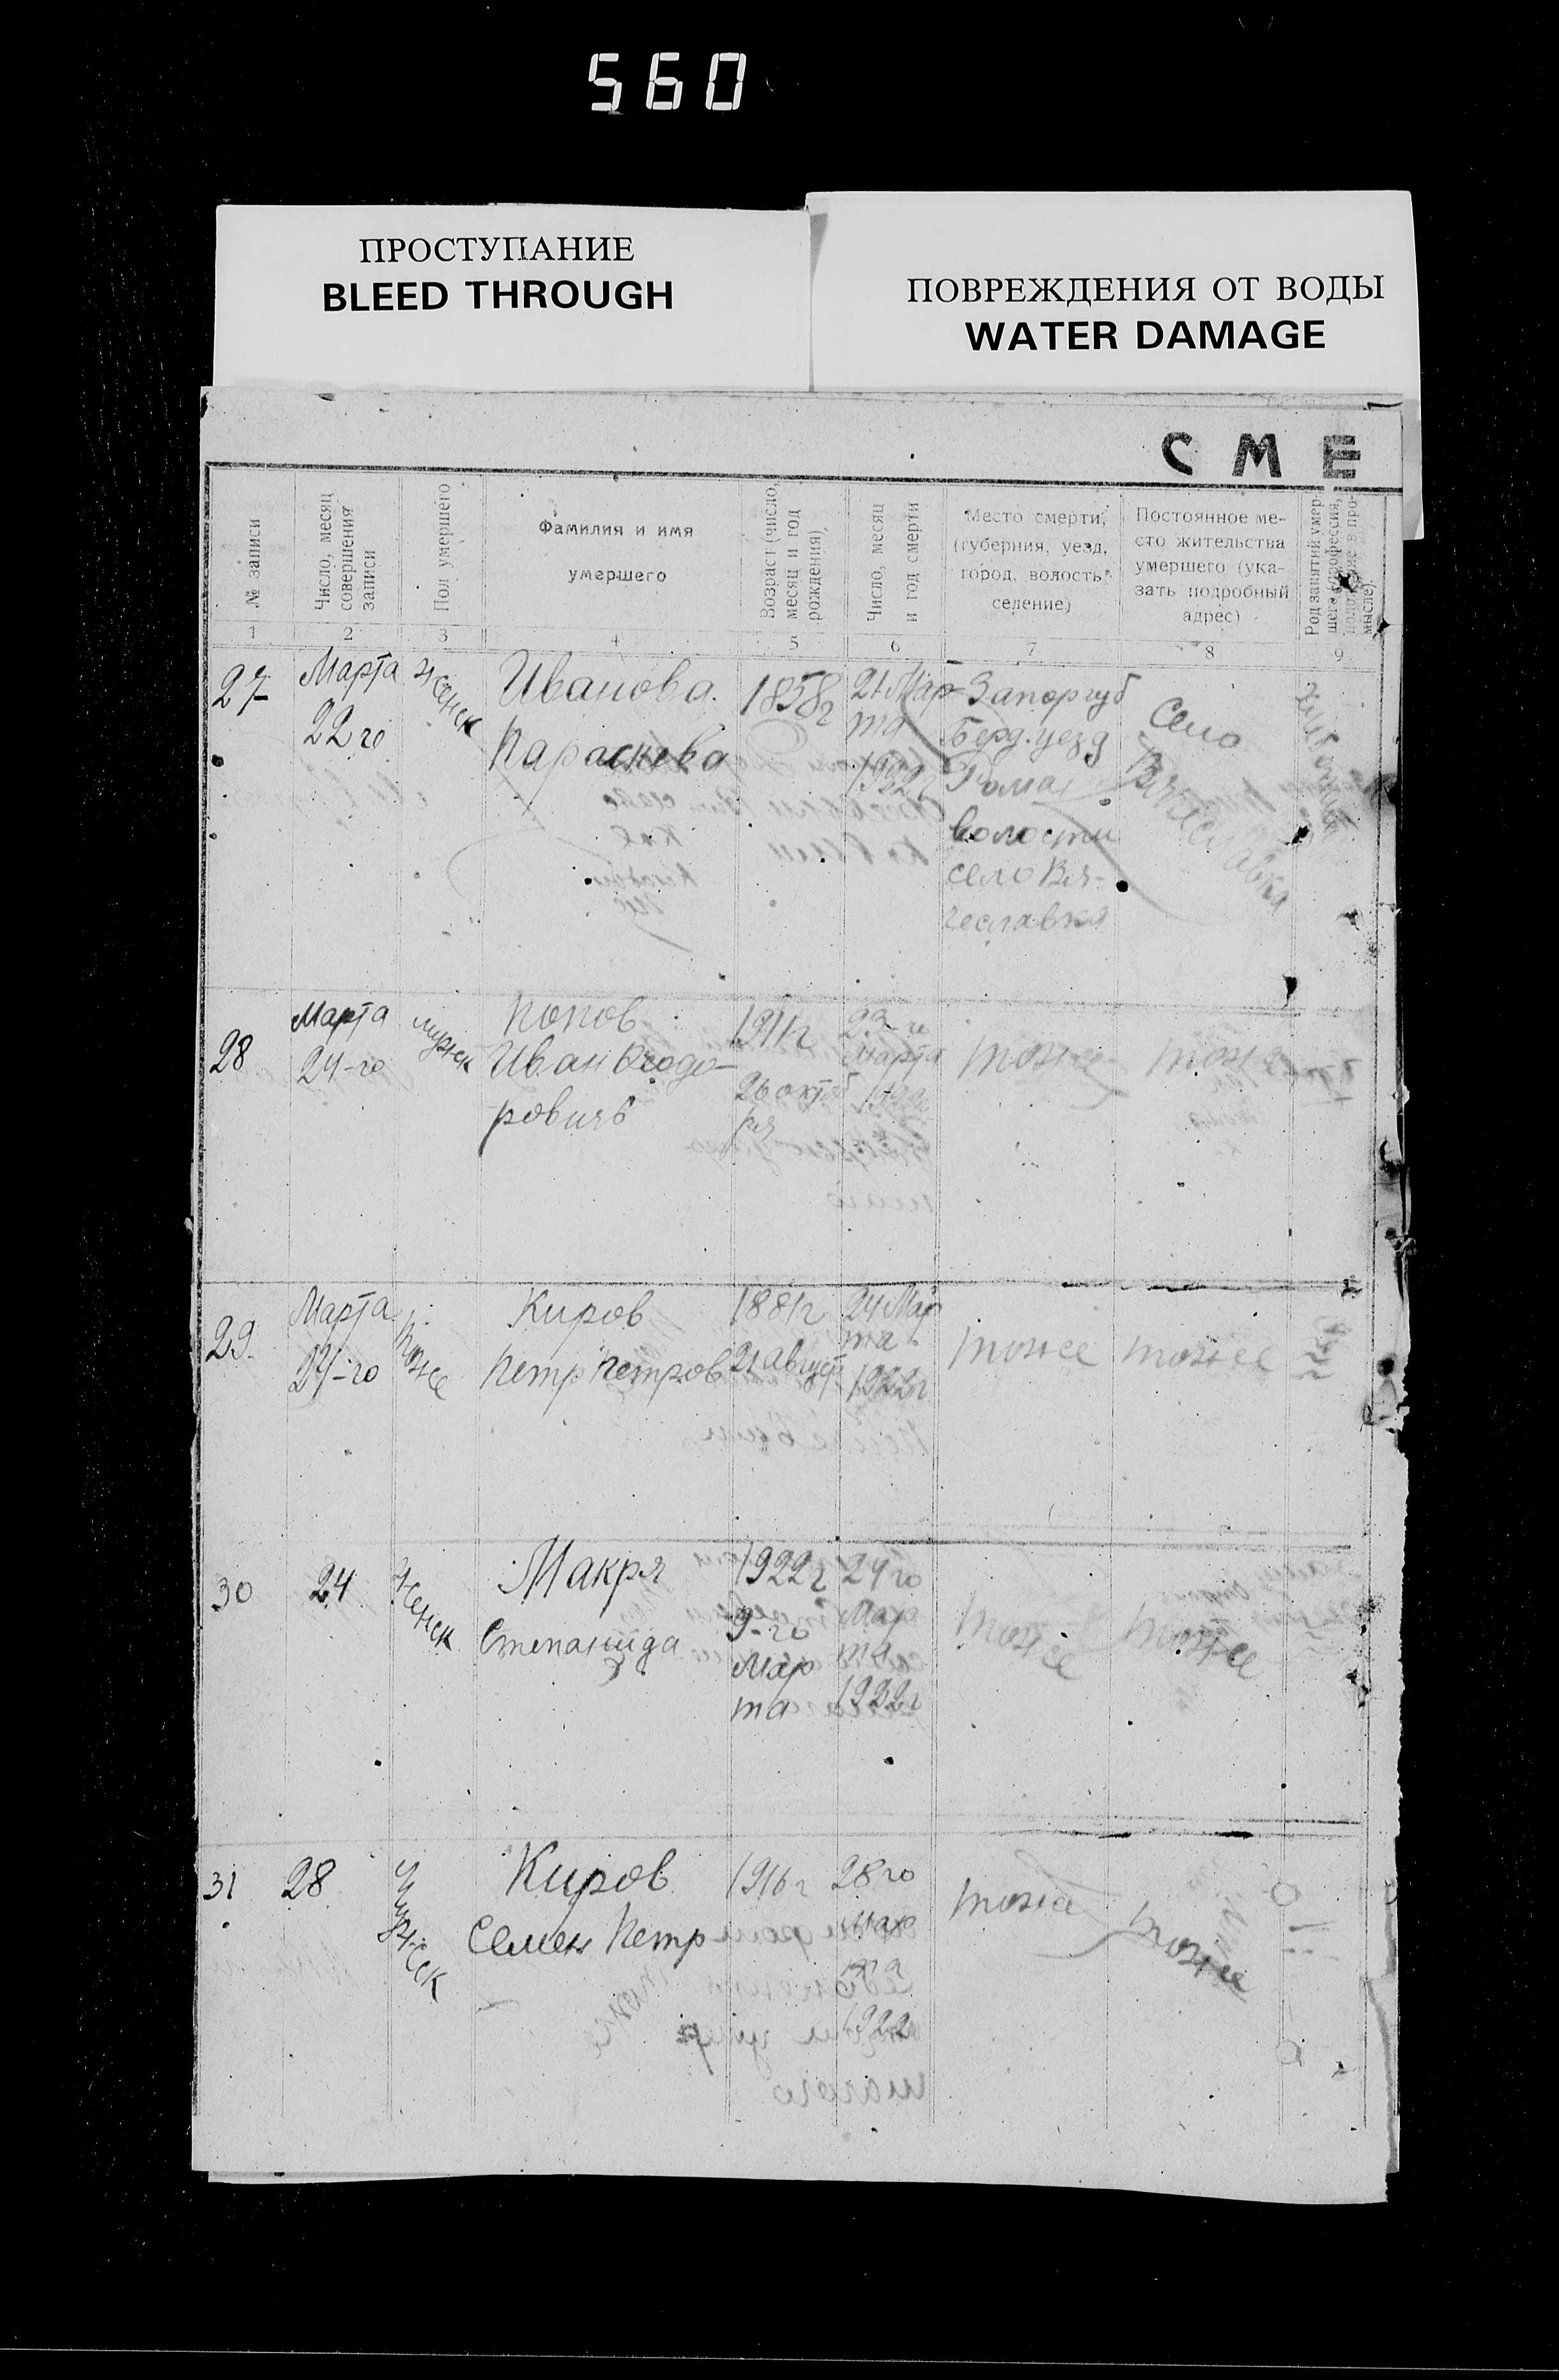 560
ПРОСТУПАНИЕ
BLEED THROUGH
ПОВРЕЖДЕНИЯ ОТ ВОДЫ
WATER DAMAGE
СМЕ
№ записи
Число, месяц
совершения
записи
Пол умершего
Фамилия и имя
умершего
Возраст (число,
месяц и год
рождения)
Число, месяц
и год смерти
Место смерти,
(губерния, уезд,
город, волость,
селение)
Постоянное ме-
сто жительства
умершего (ука-
зать подробный
адрес)
Род занятий умер-
шего (профессия,
положение в про-
мысле)
1 2 3 4 5 6 7 8 9
27
Марта
22 го
Женск
Иванова
Параскева
1858 г
21 Мар-
та
1922 г
Запор губ
Берд. уезд
Роман
волости
село Вя-
чеславка
Село
Вячеславка
28
Марта
24-го
мужск
Попов
Иван Феодо-
ровичъ
1911 г
26 октяб
ря
23-го
марта
1922
тоже
тоже
29
Марта
24-го
тоже
Киров
Петр Петров
1881 г
21 август
24 Мар
та
1922 г
тоже
тоже
30
24
Женск
Макря
Степанида
1922 г
9-го
Мар
та
24 го
Мар
та
1922 г
тоже
тоже
31
28
Мужеск
Киров
Семен Петр
1916 г
28 го
Мар
та
1922
тоже
тоже